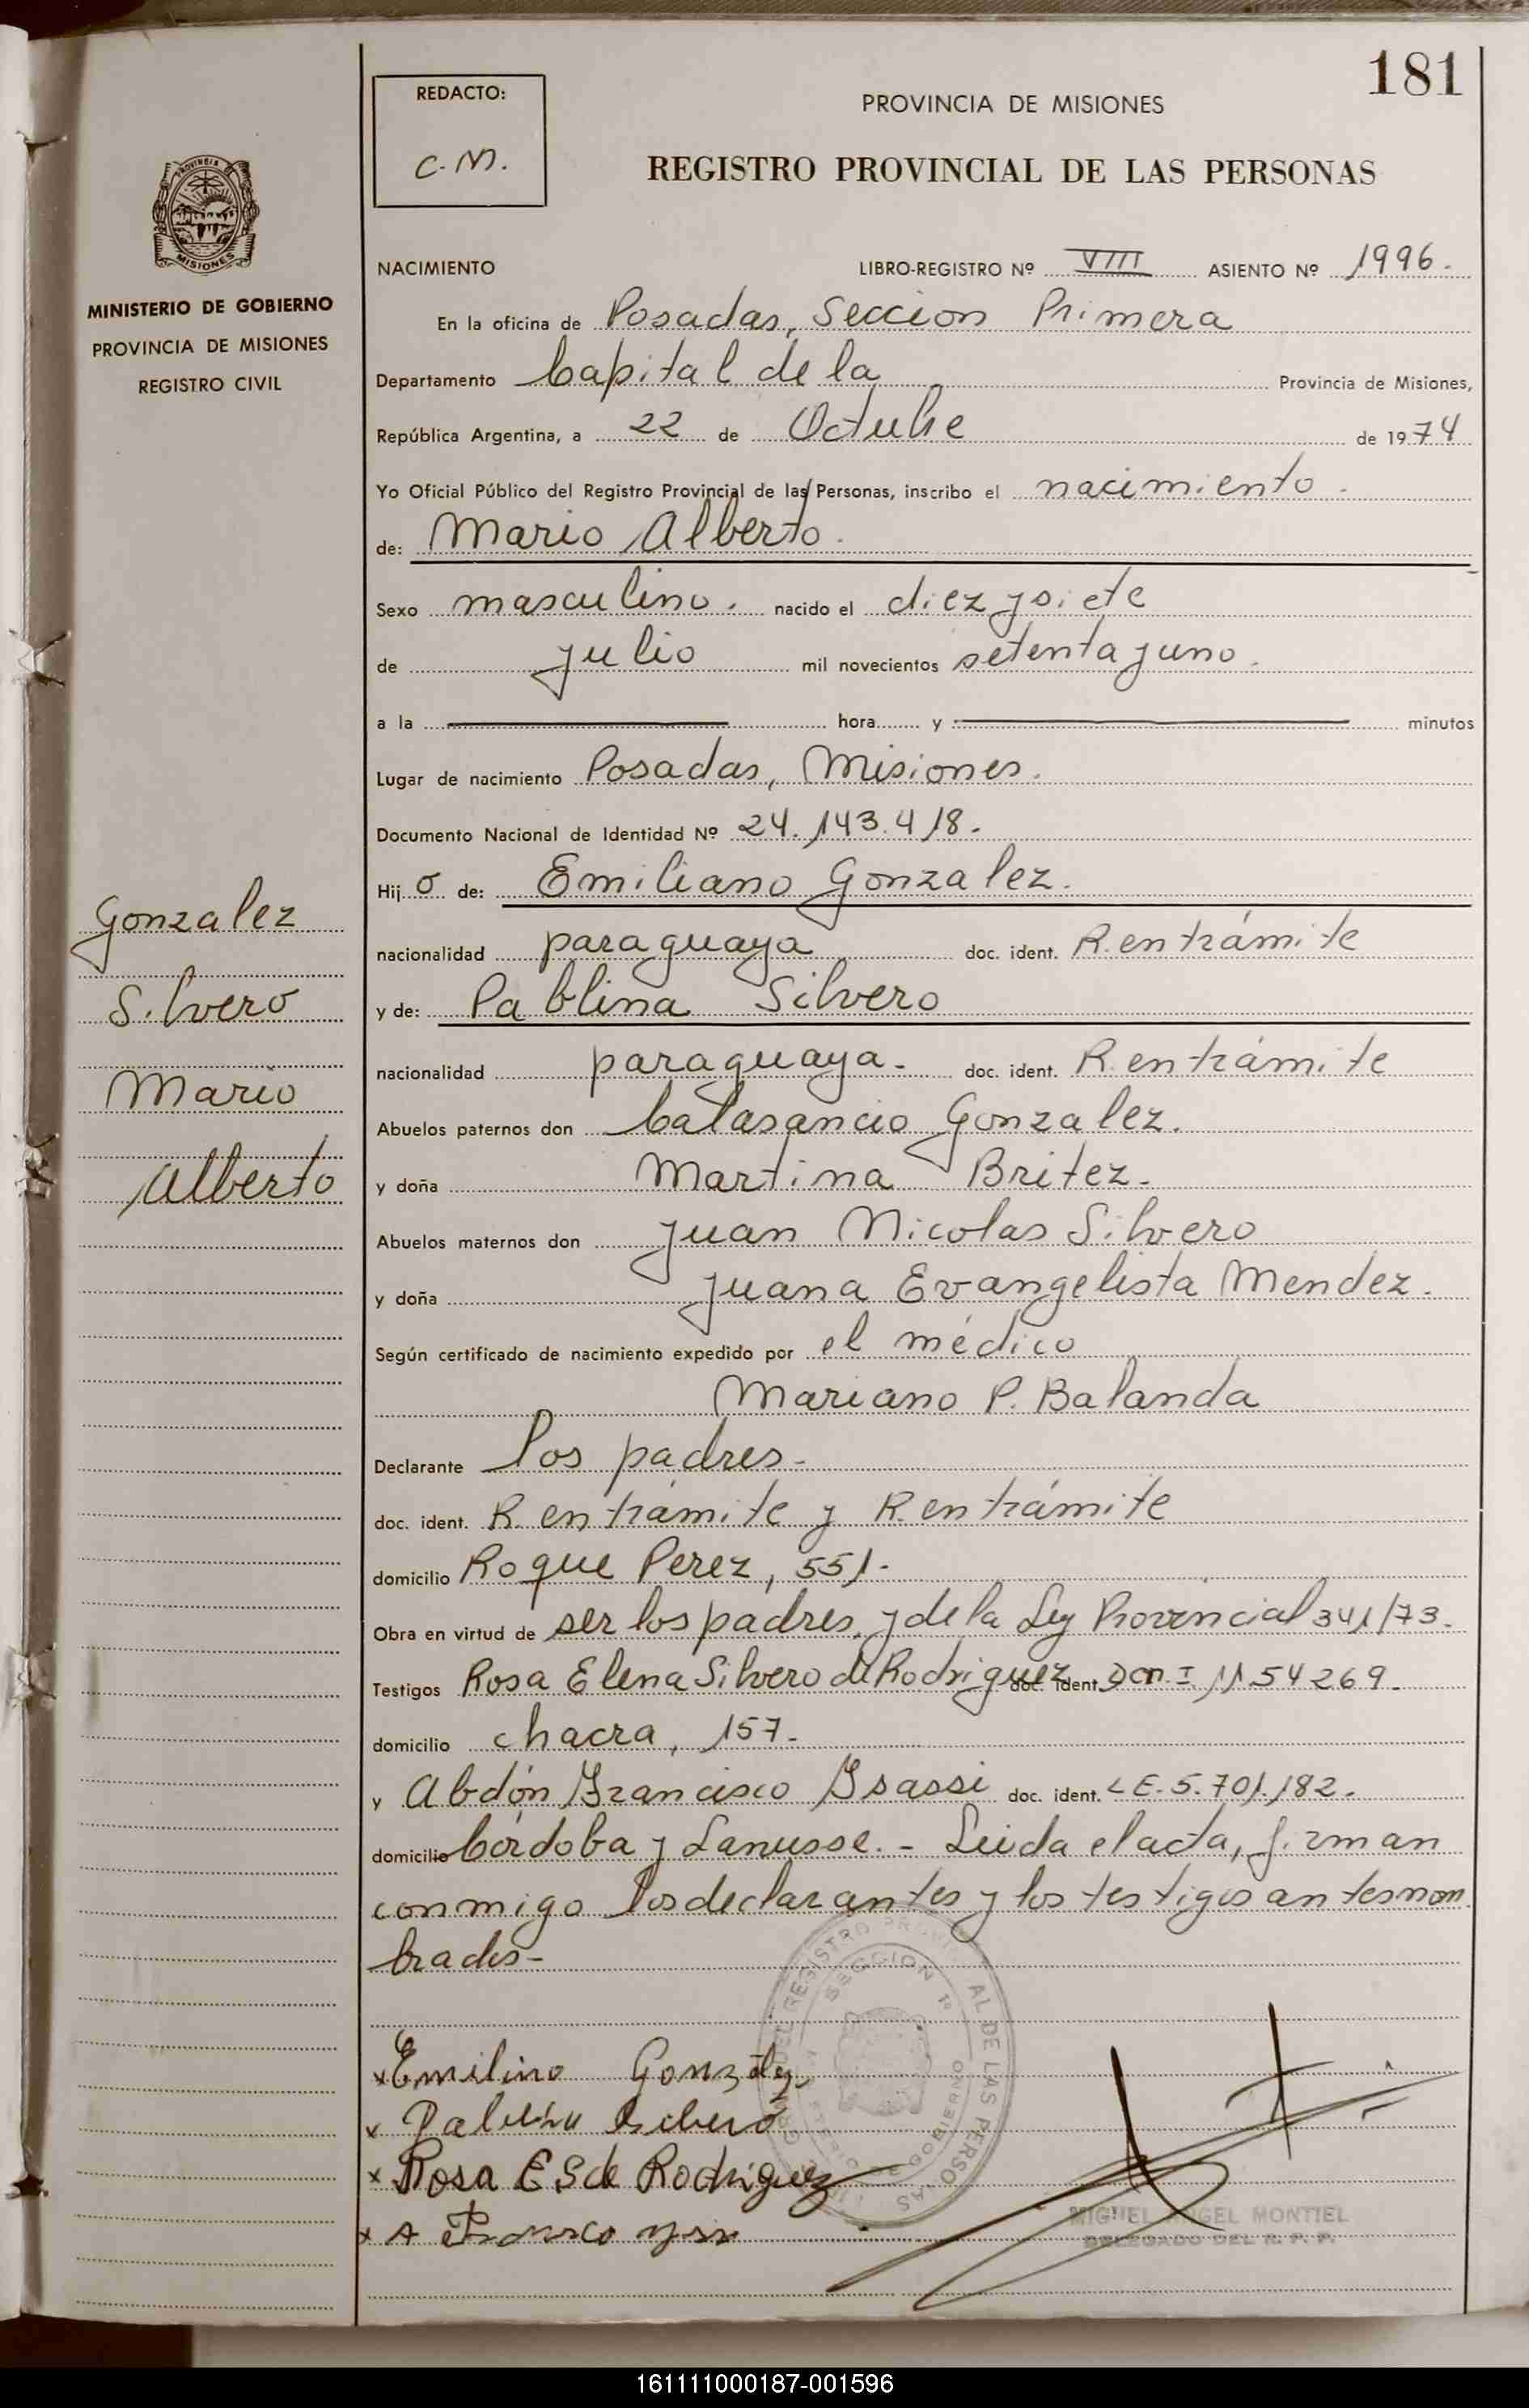 181
REDACTO:
C.M.
PROVINCIA DE MISIONES
REGISTRO PROVINCIAL DE LAS PERSONAS
MISIONES
MINISTERIO DE GOBIERNO
PROVINCIA DE MISIONES
REGISTRO CIVIL
NACIMIENTO LIBRO-REGISTRO Nº VIII ASIENTO Nº 1996.
En la oficina de Posadas, Seccion Primera
Departamento Capital de la Provincia de Misiones,
República Argentina, a 22 de Octubre de 1974
Yo Oficial Público del Registro Provincial de las Personas, inscribo el nacimiento.
de: Mario Alberto.
Sexo masculino. nacido el diez y siete
de julio mil novecientos setenta y uno.
a la hora y minutos
Lugar de nacimiento Posadas, Misiones.
Documento Nacional de Identidad Nº 24.143.418.
Hijo de: Emiliano Gonzalez.
nacionalidad paraguaya doc. ident. R. en trámite
y de: Pablina Silvero
nacionalidad paraguaya. doc. ident. R. en trámite
Abuelos paternos don Calasancio Gonzalez.
y doña Martina Britez.
Abuelos maternos don Juan Nicolas Silvero
y doña Juana Evangelista Mendez.
Según certificado de nacimiento expedido por el médico
Mariano P. Balanda
Declarante los padres.
doc. ident. R. en trámite y R. en trámite
domicilio Roque Perez, 551.
Obra en virtud de ser los padres, y de la Ley Provincial 341/73.
Testigos Rosa Elena Silvero de Rodriguez doc. ident. 1154269.
domicilio chacra, 157.
y Abdón Francisco Ysassi doc. ident. LE. 5.701.182.
domicilio Córdoba y Lanusse. - Leida el acta, firman
conmigo los declarantes y los testigos antes nom
brados-
Gonzalez
Silvero
Mario
Alberto
x Emilino Gonzalez
x
x Rosa E S de Rodriguez
x A
SECCION 1ª
MIGUEL ANGEL MONTIEL
DELEGADO DEL R. P. P.
161111000187-001596